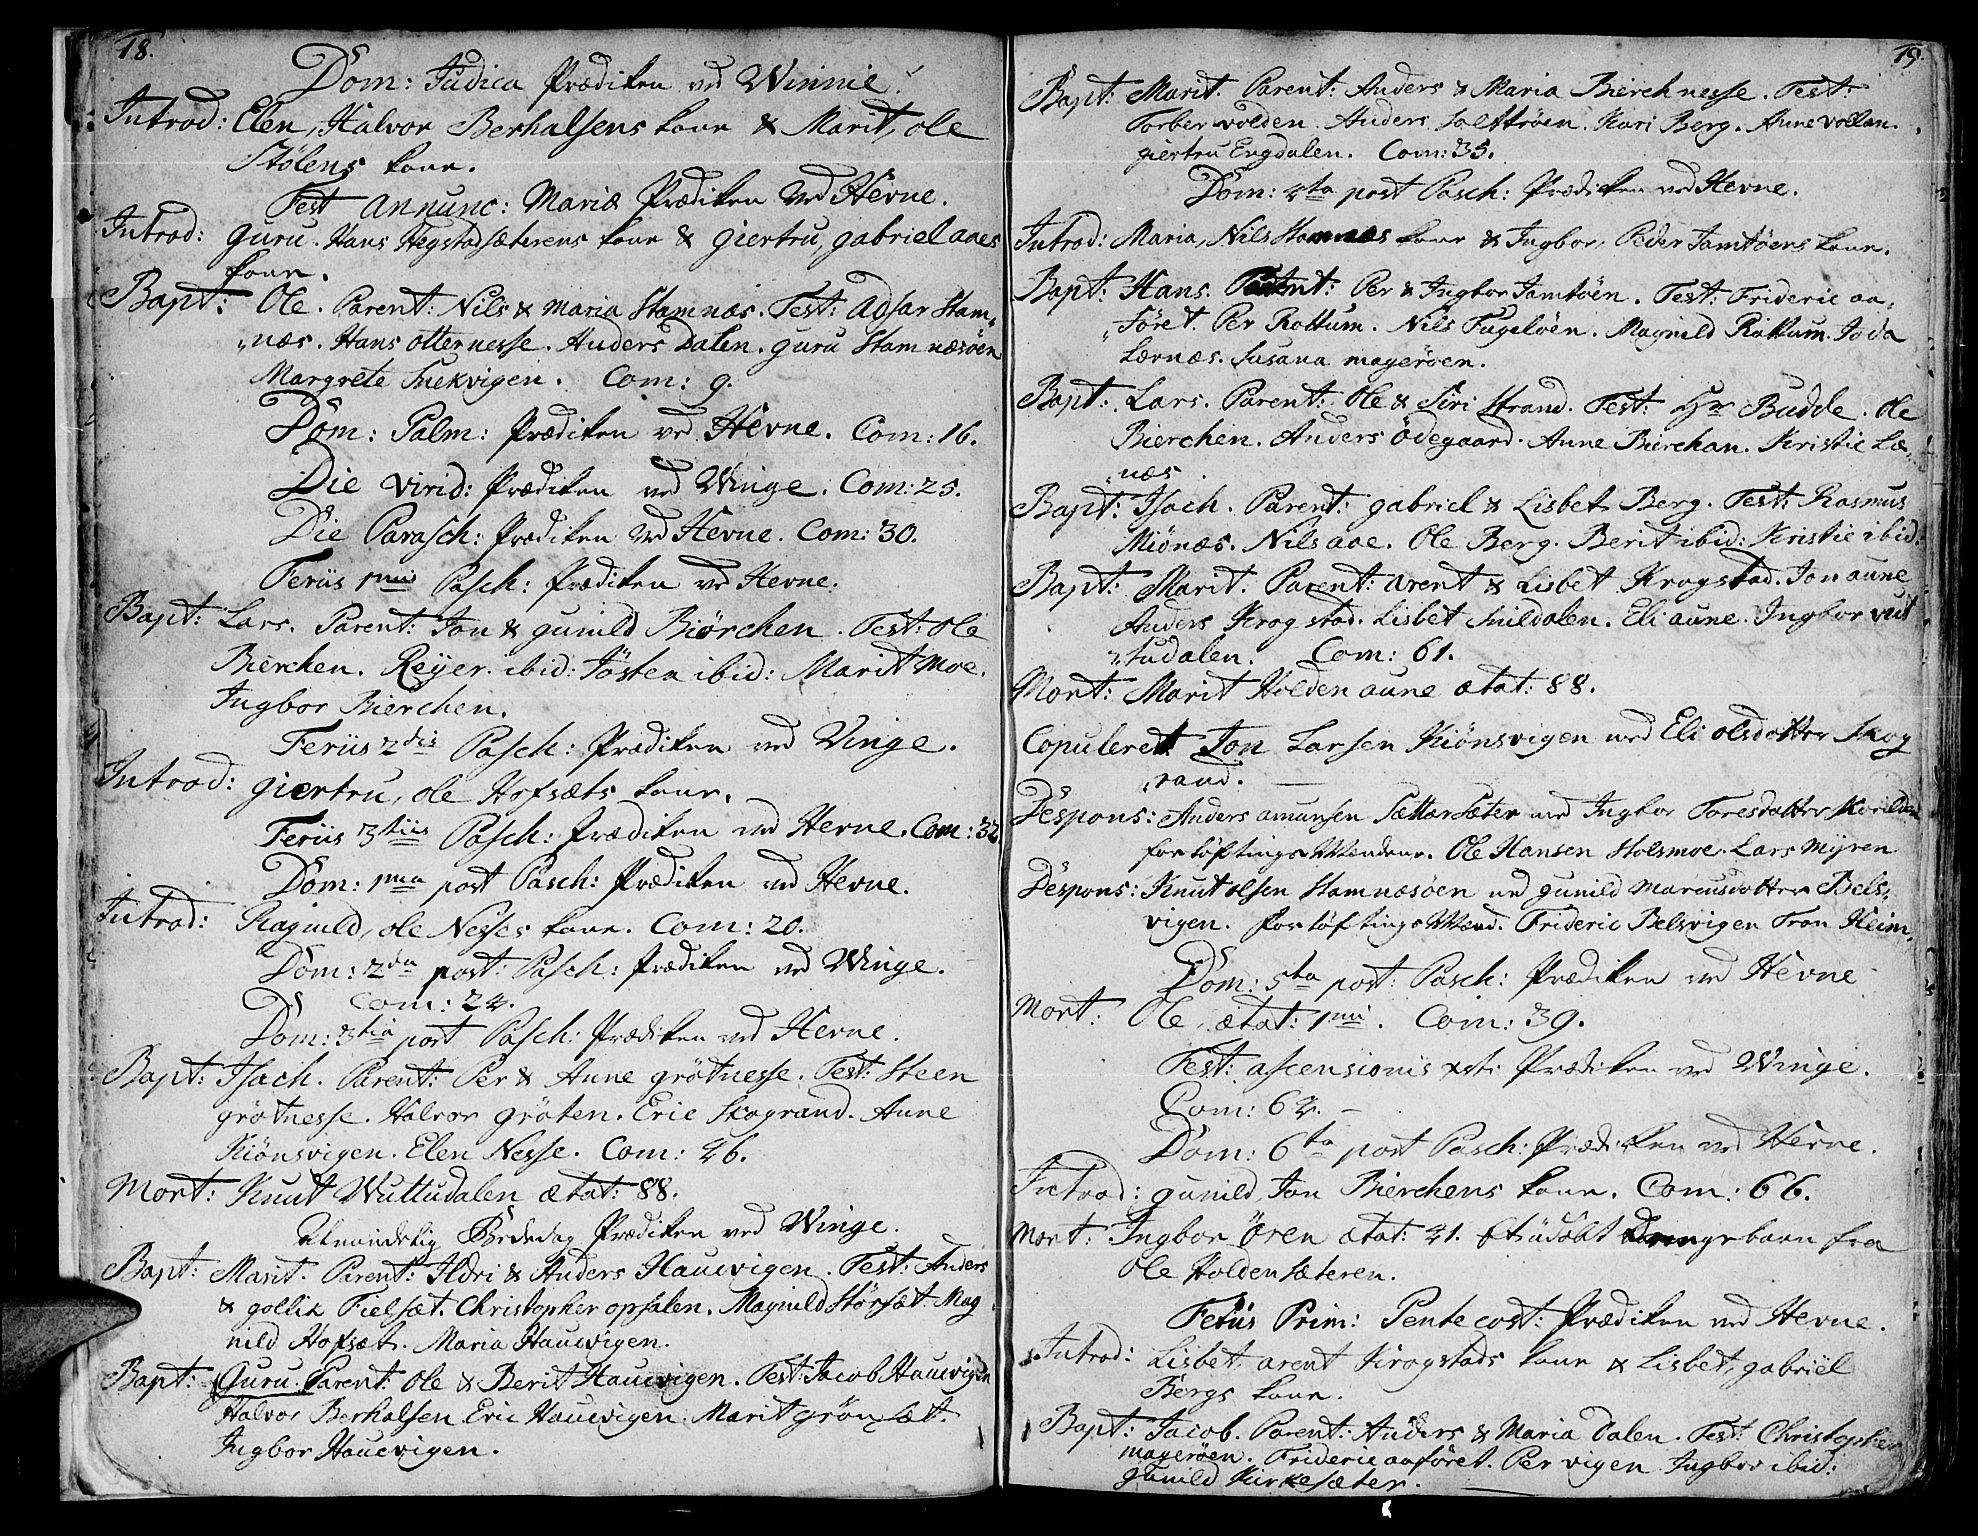 18.
Dom: Judica Prædiken ved Winnie.
Introd: Elen, Halvor Berhalsens kone & Marit, ole
Stølens kone.
Fest annunc: Mariæ Prædiken ved Hevne.
Introd: Guru. Hans Hegstadsæterens kone & giertru, gabriel aaes
kone.
Bapt: Ole. Parent: Nils & Maria Stamnæs. Test: Adsar Stam„
„næs. Hans otternesse. Anders Dalen. guru Stamnæsøen
Margrete Snekvigen. Com: 9.
Dom: Palm: Prædiken ved Hevne. Com: 16.
Die virid: Prædiken ved Winge. Com: 25.
Die Parasch: Prædiken ved Hevne. Com: 30.
Feriis 1mis Pasch: Prædiken ved Hevne.
Bapt: Lars. Parent: Jon & gunild Biørchen. Test: Ole
Bierchen. Reyer ibid: Jøsten ibid: Marit Moe.
Ingbor Bierchen.
Feriis 2dis Pasch: Prædiken ved Vinge.
Introd: giertru, ole Hofsæts kone.
Feriis 3tiis Pasch: Prædiken ved Hevne. Com: 32
Dom: 1ma post Pasch: Prædiken ved Hevne.
Introd: Ragnild, ole Nesses kone. Com: 20.
Dom: 2da post: Pasch: Prædiken ved Winge.
Com: 24.
Dom: 3tia post Pasch: Prædiken ved Hevne.
Bapt: Isach. Parent: Per & Anne grøtnesse. Test: Steen
grøtnesse. Halvor grøten. Eric Skogrand. Anne
Kiønsvigen. Elen Nesse. Com: 46.
Mort: Knut Wuttudalen ætat: 88.
Almindelig Bededag Prædiken ved Winge.
Bapt: Marit. Parent: Ildri & Anders Hauevigen. Test: Anders
& gollik Fielsæt. Christopher opsalen. Magnild Størsæt. Mag
nild Hofsæt. Maria Hauevigen.
Bapt: Guru. Parent: Ole & Berit Hauevigen. Test: Jacob Hauevigen
Halvor Berhalsen Eric Hauevigen. Marit grønsæt.
Ingbor Hauevigen.
19.
Bapt: Marit. Parent: Anders & Maria Bierchnesse. Test:
Torber volden. Anders Solttrøen. Kari Berg. Anne vollan.
giertru Engdalen. Com: 35.
Dom: 4ta post Pasch: Prædiken ved Hevne.
Introd: Maria, Nils Stamnæs kone & Ingbor, Peder Tamtøens kone.
Bapt: Hans. Parent: Per & Ingbor Tamtøen. Test: Frideric aa„
„føret. Per Rottum. Nils Fugeløen. Magnild Rottum. Joda
Lernæs. Susana magerøen.
Bapt: Lars. Parent: Ole & Siri Strand. Test: Hr Budde. Ole
Bierchen. Anders Ödegaard. Anne Bierchan. Kristie Læ„
„næs.
Bapt: Isach. Parent: gabriel & Lisbet Berg. Test: Rasmus
Miønæs. Nils aae. Ole Berg. Berit ibid: Kristie ibid:
Bapt: Marit. Parent: arent & Lisbet Krogstad. Jon aune
Anders Krogstad. Lisbet Snildalen. Eli aune. Ingbor vut
„tudalen. Com: 61.
Mort: Marit Holdenaune ætat: 88.
Copuleret Jon Larsen Kiønsvigen med Eli olsdatter Skog
„rand.
Despons: Anders amunsen Sættersæter med Ingbor Toresdatter
forløftings Mændene. Ole Hansen Holsmoe. Lars Myren
Despons: Knut olsen Stamnæsøen med gunild Marcusdatter Bels„
vigen. forløftings Mænd. Frideric Belsvigen Tron Heim„
Dom: 5ta post: Pasch: Prædiken ved Hevne
Mort: Ole, ætat: 1mi. Com: 39.
Fest: ascensionis xsti Prædiken ved Winge.
Com: 64.
Dom: 6ta post Pasch: Prædiken ved Hevne.
Introd: gunild, Jon Bierchens kone. Com: 66.
Mort: Ingbor Ören ætat: 41. Et udøbt Drengebarn fra
Ole Holdensæteren.
Feriis Prim: Pentecost: Prædiken ved Hevne.
Introd: Lisbet, arent Krogstads kone & Lisbet, gabriel
Bergs kone.
Bapt: Jacob. Parent: Anders & Maria Dalen. Test: Christopher
magerøen. Frideric aaføret. Per vigen. Ingbor ibid:
gunild Kirkesæter.